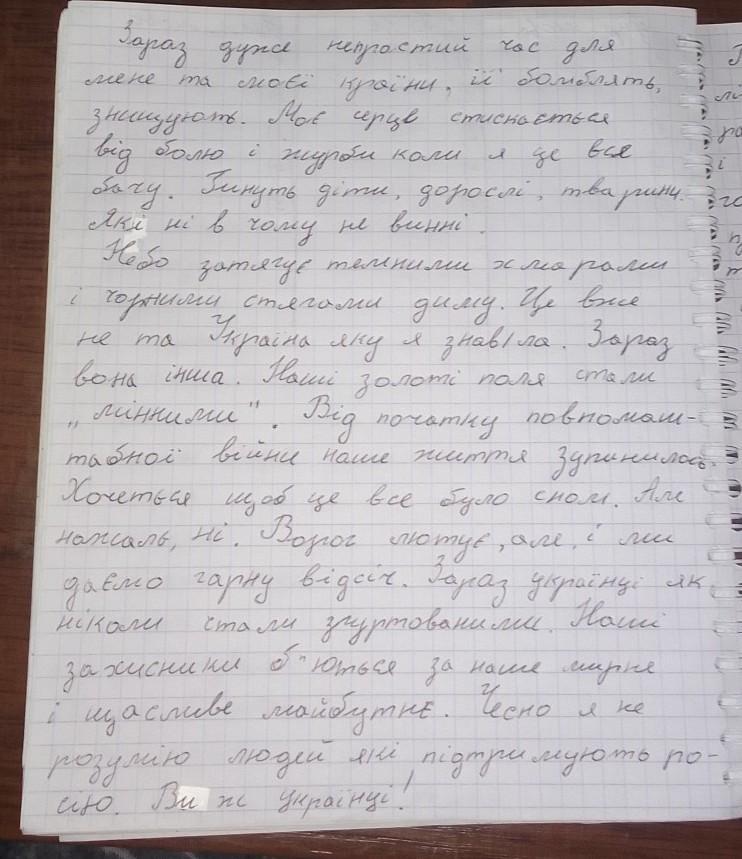 Зараз дуже непростий час для
мене та моєї країни, її бомблять,
знищують. Моє серце стискається
від болю і журби коли я це все
бачу. Гинуть діти, дорослі, тварини.
Які ні в чому не винні.
Небо затягує темними хмарами
і чорними стягами диму. Це вже
не та Україна яку я знав/ла. Зараз
вона інша. Наші золоті поля стали
„мінними". Від початку повномаш-
табної війни наше життя зупинилось.
Хочеться щоб це все було сном. Але
нажаль, ні. Ворог лютує, але, і ми
даємо гарну відсіч. Зараз українці як
ніколи стали згуртованими. Наші
захисники б'ються за наше мирне
і щасливе майбутнє. Чесно я не
розумію людей які підтримують ро-
сію. Ви ж українці!